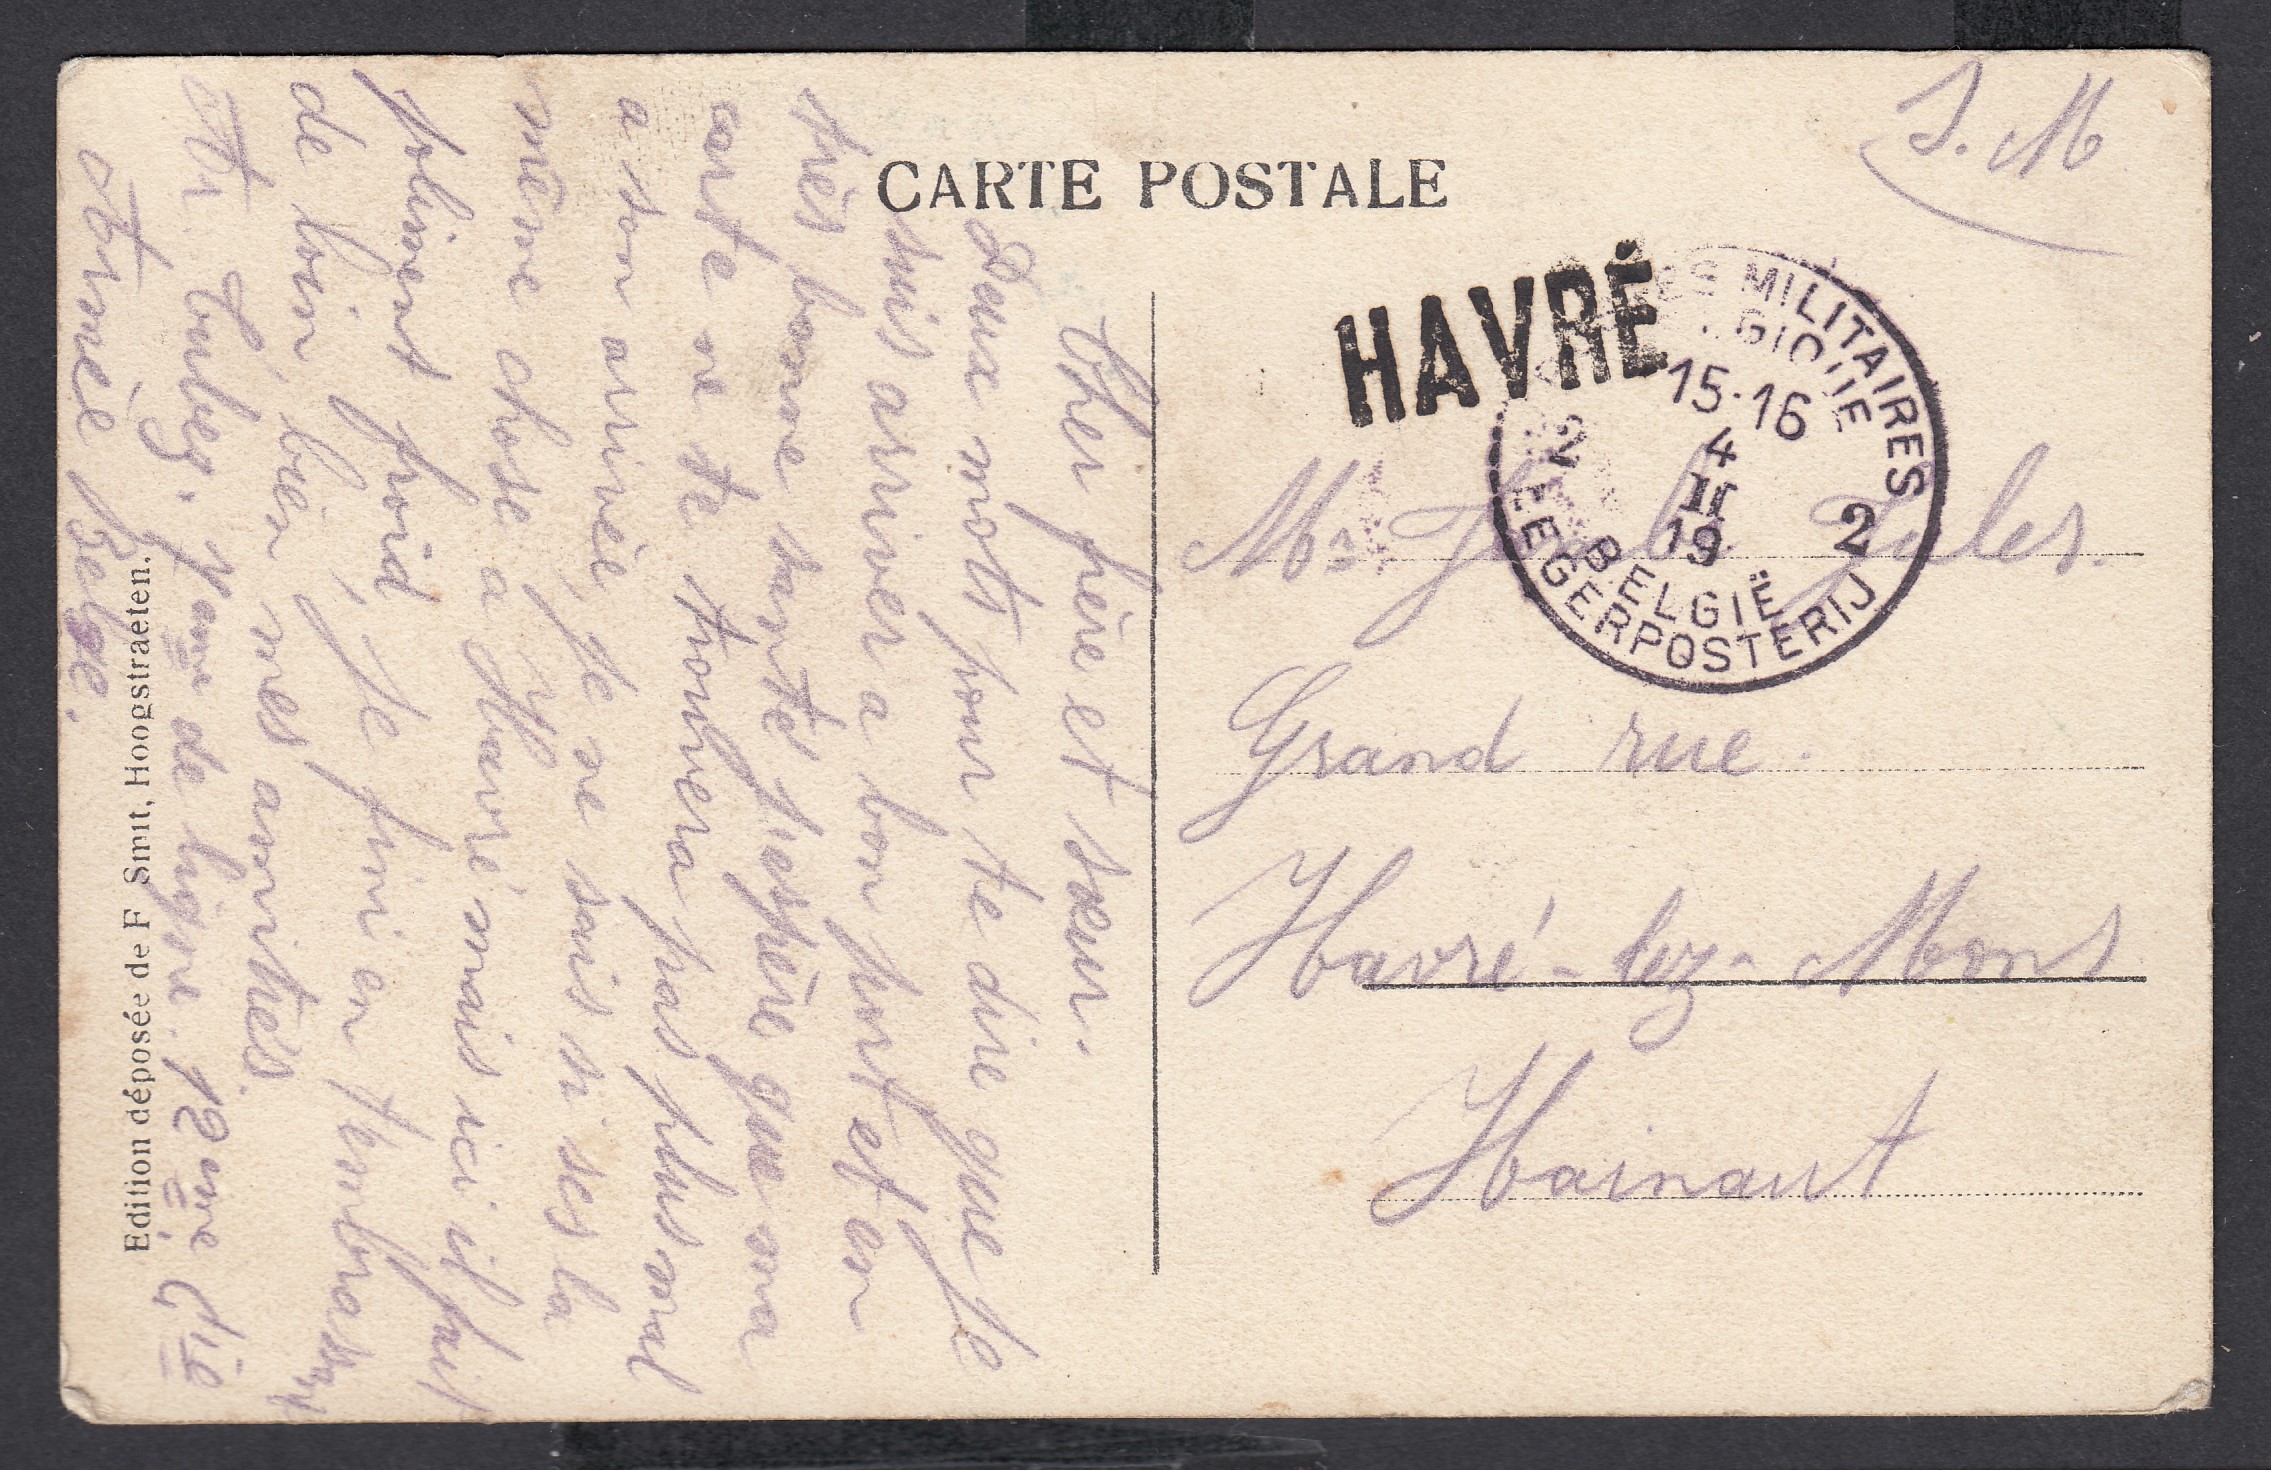 CARTE POSTALE
S. M
HAVRÉ
POSTES MILITAIRES
BELGIQUE
15-16
4
II
19
2 2
BELGIË
LEGERPOSTERIJ
Mr Jules.
Grand rue.
Havré-lez-Mons
Hainaut
Cher frère et sœur.
Deux mots pour te dire que je
suis arriver a bon port et en
très bonne santé j'espère que ma
carte ne te trouvera pas plus mal
a son arrivée je ne sais si ses la
même chose a Havré mais ici il fait
joliment froid je fini en t'embrassant
de loin, bien mes amitiés.
de ligne. 12eme Cie
Armée Belge.
Edition déposée de F Smit, Hoogstraeten.